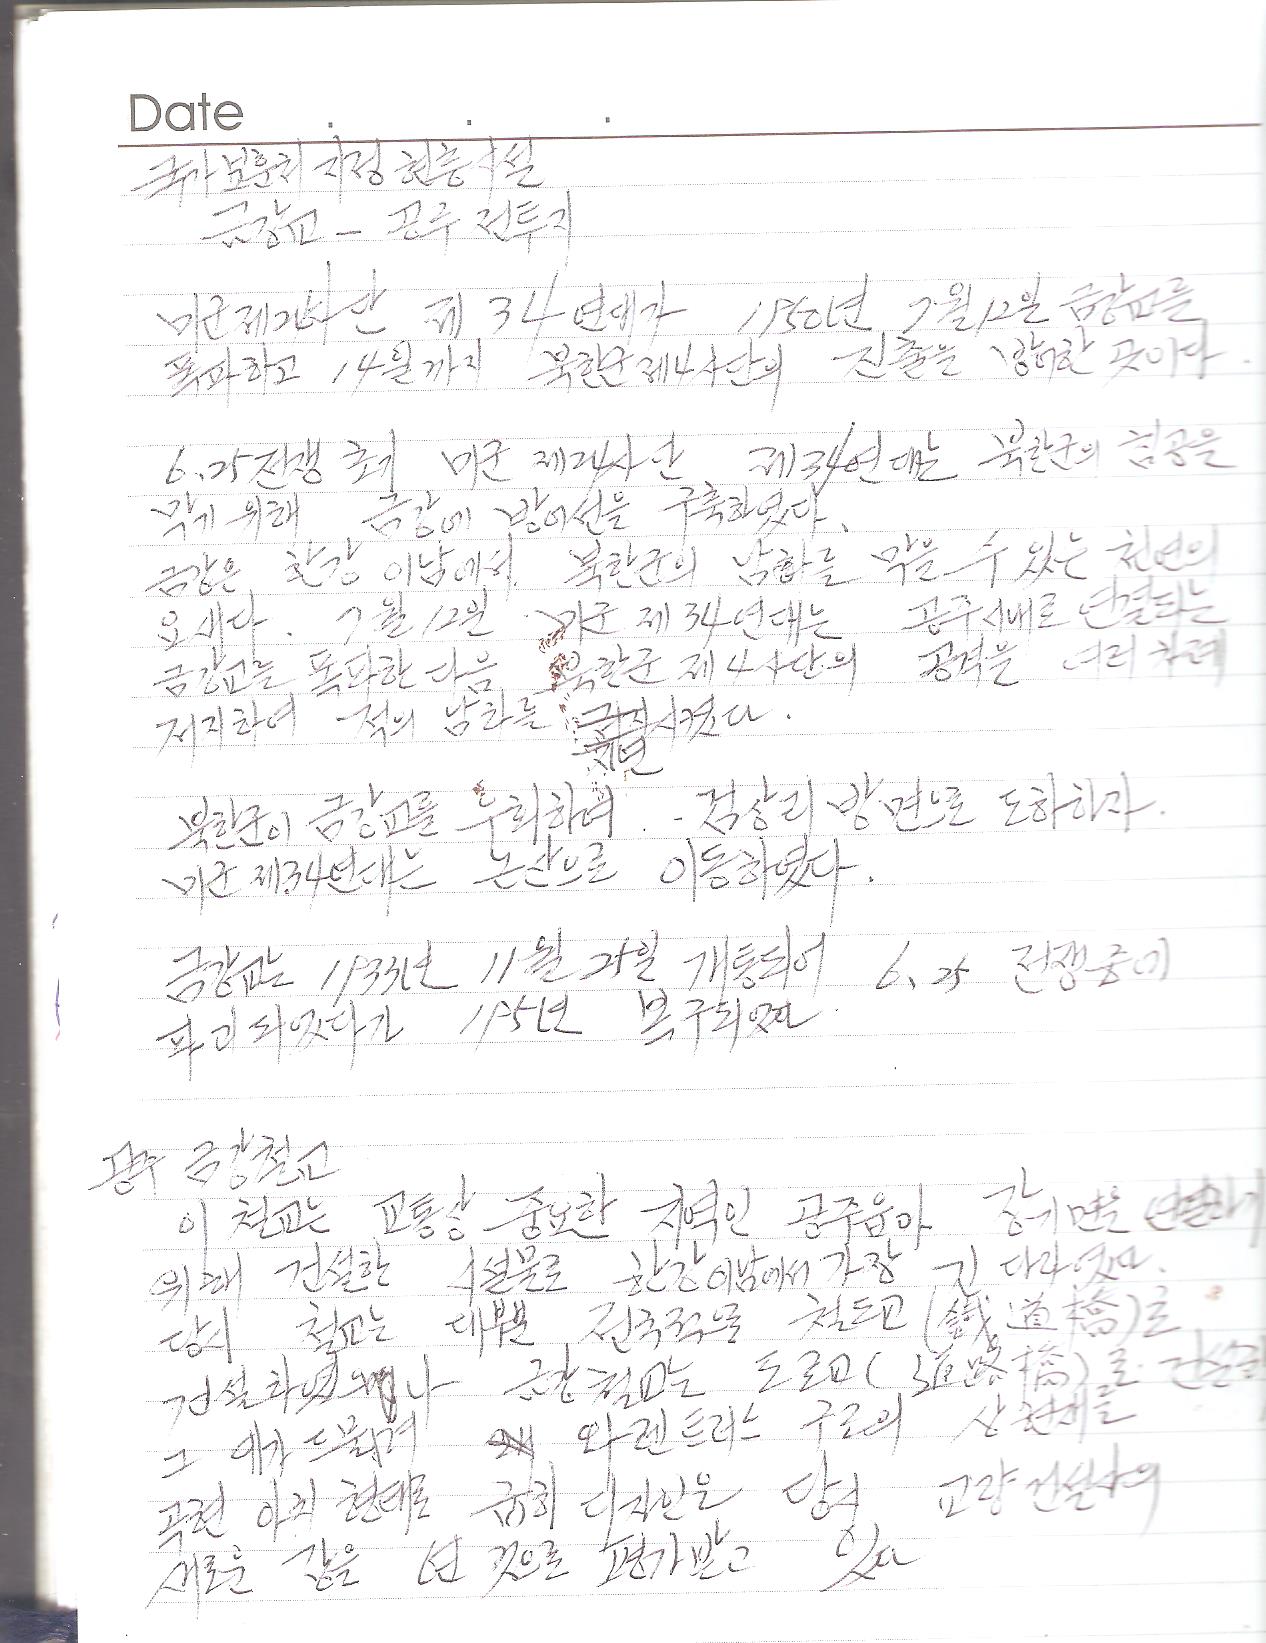 Date . . .
국가보훈처 지정 현충시설
금강교 - 공주 전투지
미군 제24사단 제34연대가 1950년 7월 12일 금강교를
폭파하고 14일까지 북한군 제4사단의 진출을 방어한 곳이다.
6.25전쟁 초기 미군 제24사단 제34연대는 북한군의 침공을
막기 위해 금강에 방어선을 구축하였다.
금강은 한강 이남에서 북한군의 남하를 막을 수 있는 천연의
요새다. 7월 12일 미군 제34연대는 공주시내로 연결되는
금강교를 폭파한 다음 북한군 제4사단의 공격을 여러 차례
저지하여 적의 남하를 지연시켰다.
북한군이 금강교를 우회하여 검상리 방면으로 도하하자.
미군 제34연대는 논산으로 이동하였다.
금강교는 1933년 11월 25일 개통되어 6.25 전쟁중에
파괴되었다가 1951년 복구되었다
공주 금강철교
이 철교는 교통상 중요한 지역인 공주읍과 장기면을 연결하기
위해 건설한 시설물로 한강이남에서 가장 긴 다리였다.
당시 철교는 대부분 전국적으로 철도교(鐵道橋)로
건설하였으나 금강철교는 도로교(道路橋)로 건설한
그 예가 드물며 와렌트러스 구조의 상현재를
곡현 아치 형태로 디자인은 당시 교량건설사의
새로운 장을 연 것으로 평가받고 있다